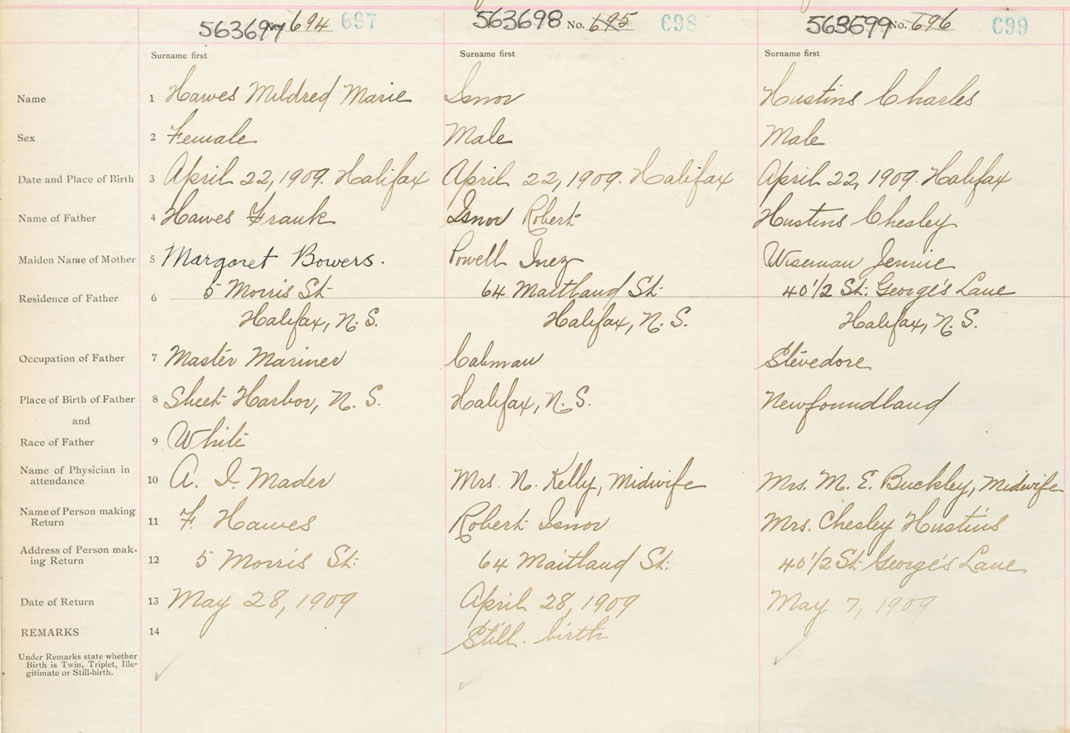 563697 No. 694 697 563698 No. 695 698 563699 No. 696 699
Surname first Surname first Surname first
Name 1 Hawes Mildred Marie Isnor Hustins Charles
Sex 2 Female Male Male
Date and Place of Birth 3 April 22, 1909. Halifax April 22, 1909. Halifax April 22, 1909. Halifax
Name of Father 4 Hawes Frank Isnor Robert Hustins Chesley
Maiden Name of Mother 5 Margaret Bowers. Powell Inez Wiseman Jennie
Residence of Father 6 5 Morris St. 64 Maitland St. 40 1/2 St. George's Lane
Halifax, N. S. Halifax, N. S. Halifax, N. S.
Occupation of Father 7 Master Mariner Cabman Stevedore
Place of Birth of Father 8 Sheet Harbor, N. S. Halifax, N. S. Newfoundland
and
Race of Father 9 White
Name of Physician in
attendance 10 A. I. Mader Mrs. N. Kelly, Midwife Mrs. M. E. Buckley, Midwife
Name of Person making
Return 11 F Hawes Robert Isnor Mrs. Chesley Hustins
Address of Person mak-
ing Return 12 5 Morris St. 64 Maitland St. 40 1/2 St. George's Lane
Date of Return 13 May 28, 1909 April 28, 1909 May 7, 1909
REMARKS 14 Still. birth
Under Remarks state whether
Birth is Twin, Triplet, Ille-
gitimate or Still-birth.